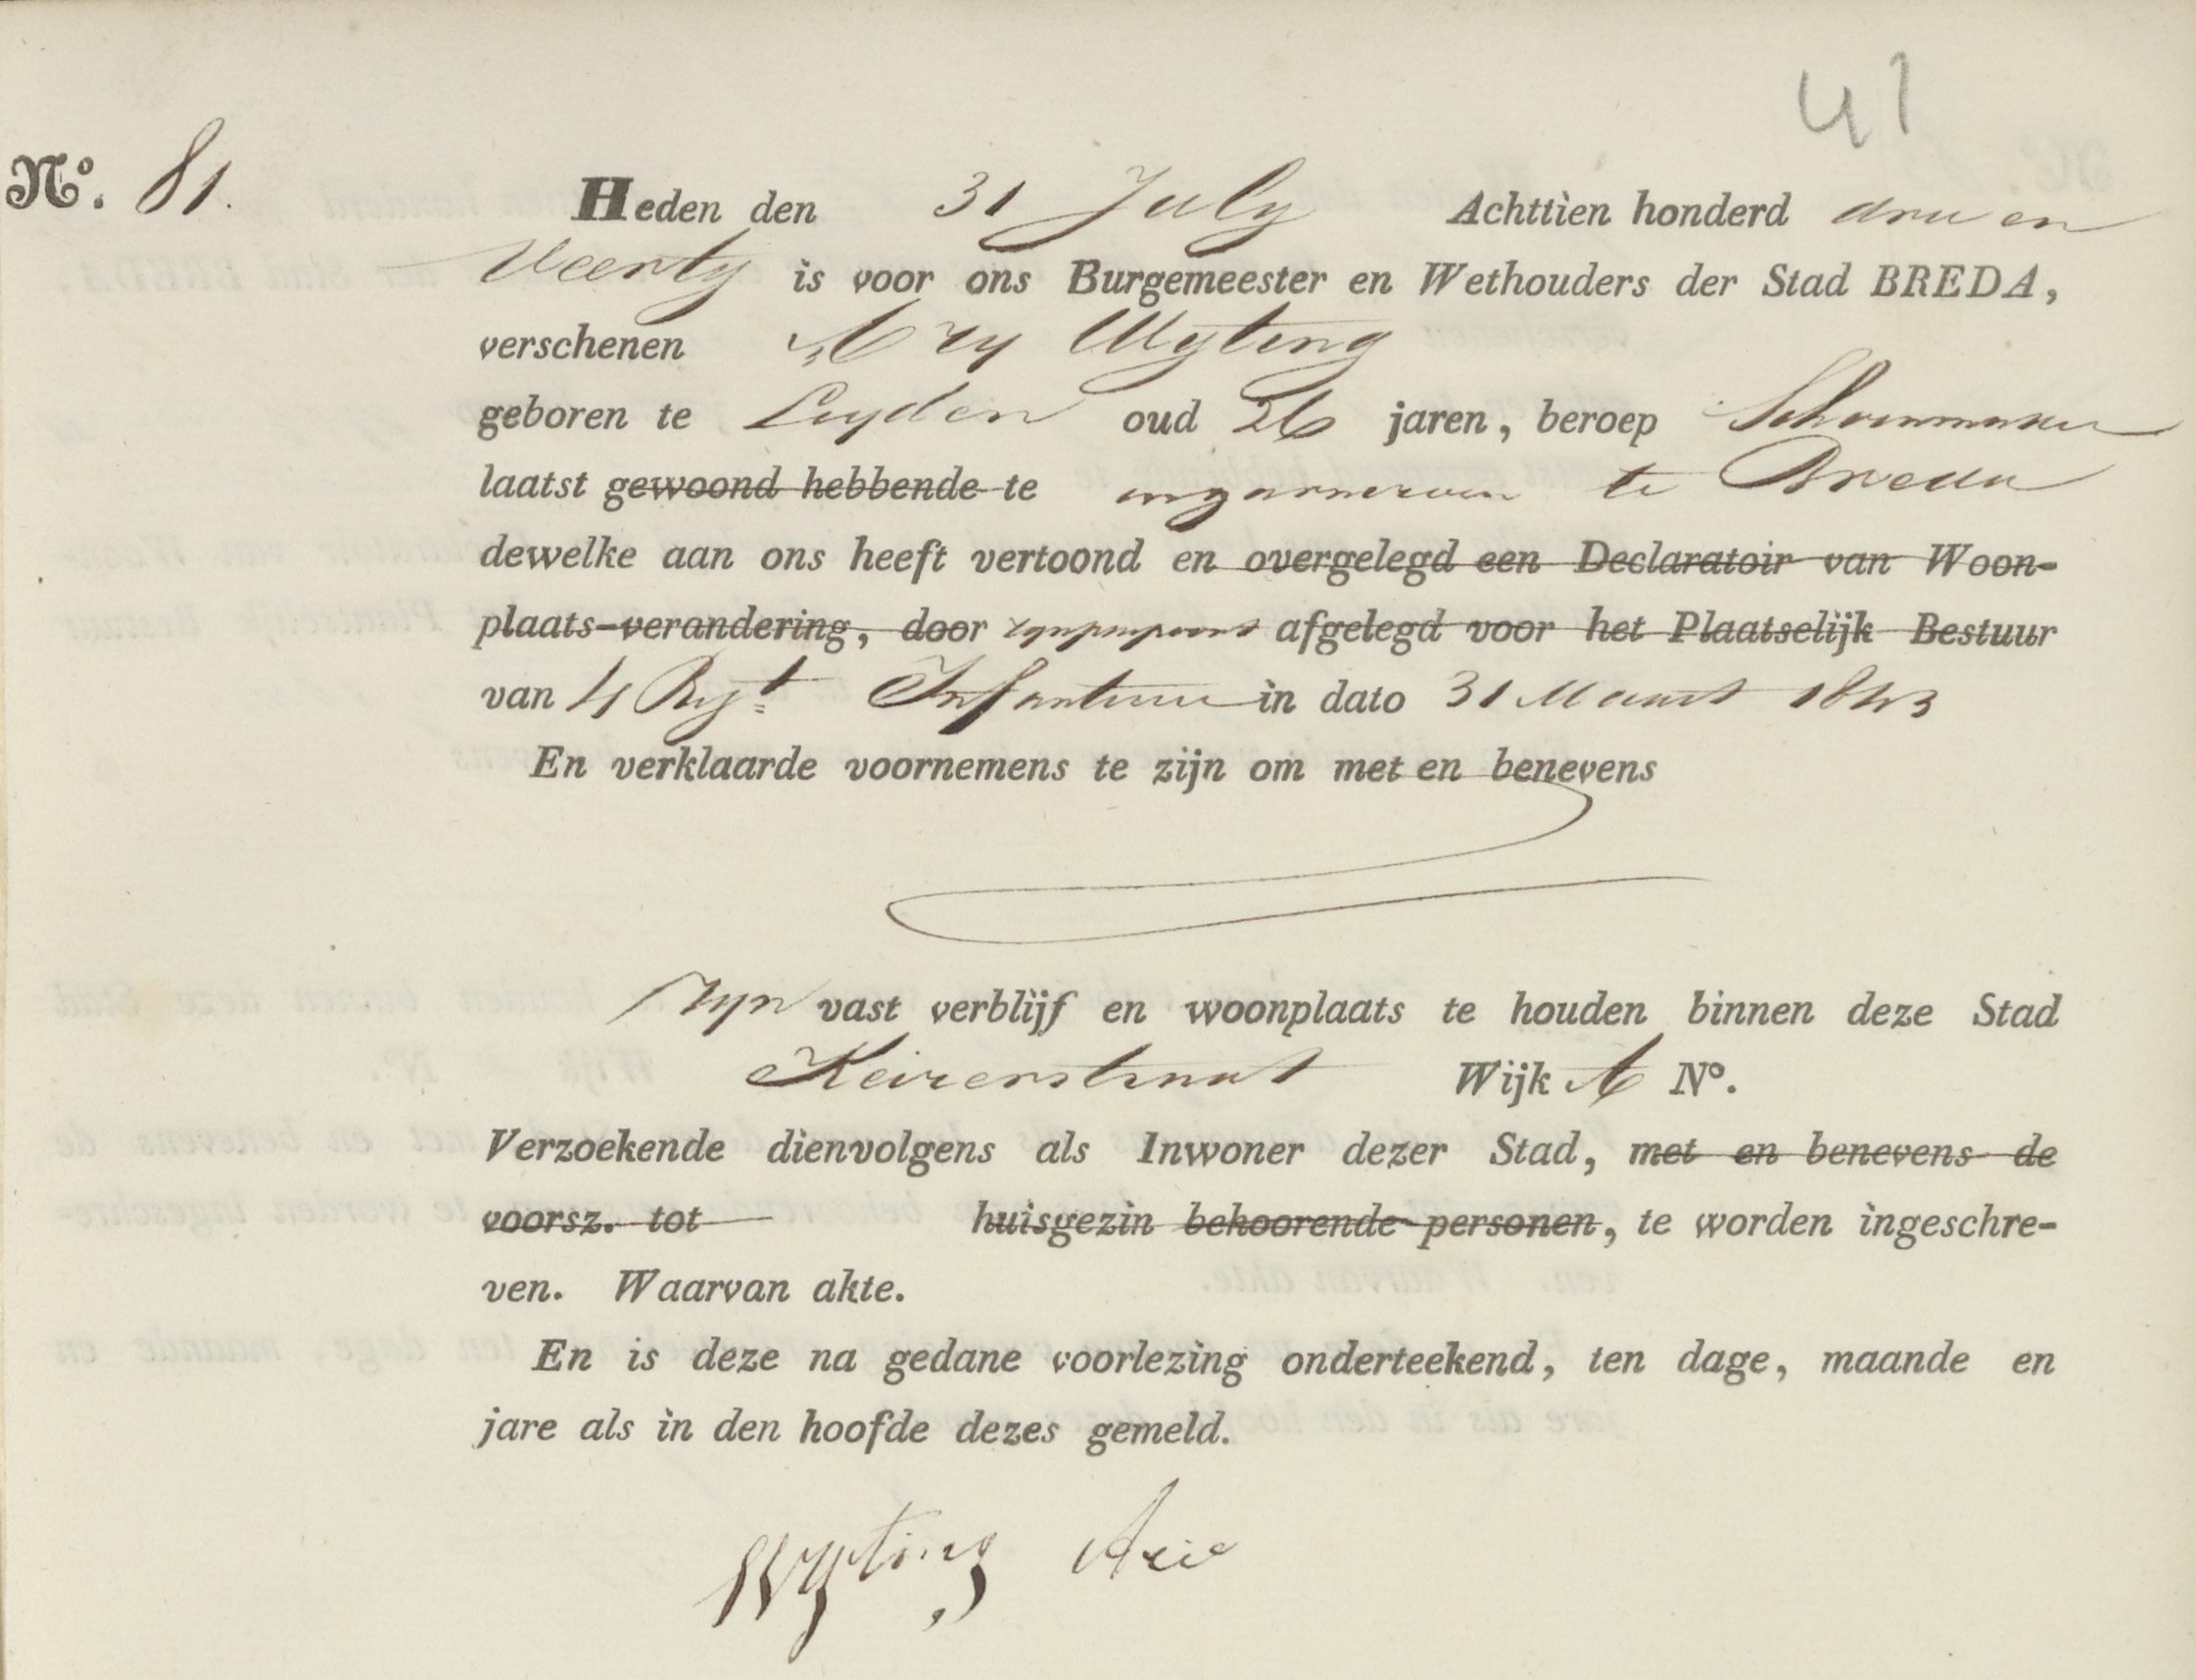 41
Nº. 81.
Heden den 31 July Achttien honderd drie en
Veerty is voor ons Burgemeester en Wethouders der Stad BREDA,
verschenen Ary Wyting
geboren te Leyden oud 26 jaren, beroep Schoenmaker
laatst gewoond hebbende te in garnizoen te Breda
dewelke aan ons heeft vertoond en overgelegd een Declaratoir van Woon-
plaats-verandering, door zyn paspoort afgelegd voor het Plaatselijk Bestuur
van 4 Regt Infanterie in dato 31 Maart 1843
En verklaarde voornemens te zijn om met en benevens
Zyn vast verblijf en woonplaats te houden binnen deze Stad
Keizerstraat Wijk A Nº.
Verzoekende dienvolgens als Inwoner dezer Stad, met en benevens de
voorsz. tot huisgezin behoorende personen, te worden ingeschre-
ven. Waarvan akte.
En is deze na gedane voorlezing onderteekend, ten dage, maande en
jare als in den hoofde dezes gemeld.
Wyting Arie